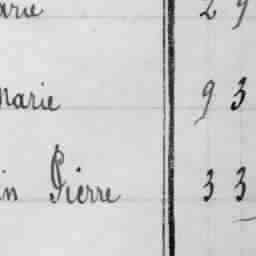 arie 29
Marie 93
in Pierre 33